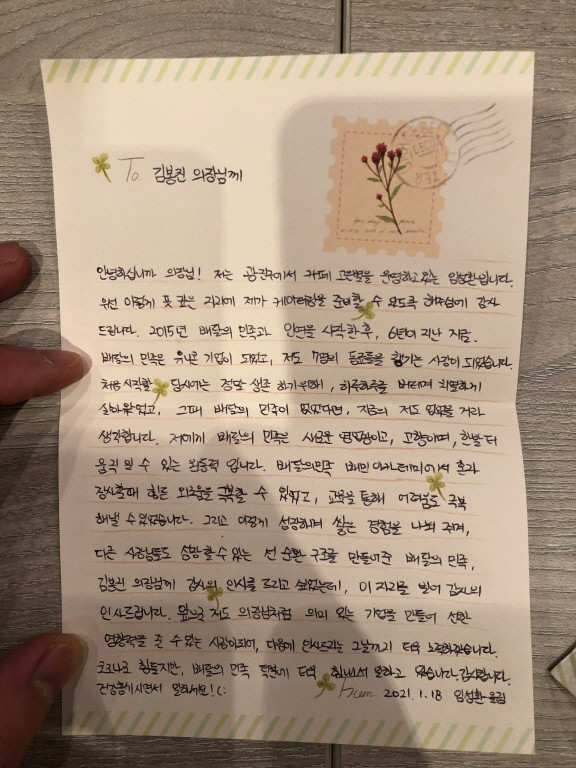 To 김봉진 의장님께
안녕하십니까 의장님! 저는 광진구에서 카페 고든밀을 운영하고있는 임성환입니다.
우선 이렇게 뜻 깊은 자리에 제가 케이터링을 준비할 수 있도록 해주심에 감사
드립니다. 2015년 배달의 민족과 인연을 시작한후, 6년이 지난 지금.
배달의 민족은 유니콘 기업이 되었고, 저도 7명의 동료들을 챙기는 사장이 되었습니다.
처음 시작할 당시에는 정말 생존 하기위해, 하루하루를 버티며 치열하게
살아왔었고, 그때 배달의 민족이 없었다면, 지금의 저도 없을 거라
생각합니다. 저에게 배달의 민족은 새로운 영감이고, 고향이며, 한발 더
움직일 수 있는 원동력 입니다. 배달의민족 배민아카데미에서 혼자
장사할때 힘든 외로움을 극복할 수 있었고, 교육을 통해 어려움도 극복
해낼 수있었습니다. 그리고 이렇게 성장하며 쌓은 경험을 나눠 주며,
다른 사장님들도 성장할수있는 선 순환 구조를 만들어준 배달의 민족,
김봉진 의장님께 감사의 인사를 드리고 싶었는데, 이 자리를 빌어 감사의
인사드립니다. 앞으로 저도 의장님처럼 의미 있는 기업을 만들어 선한
영향력을 줄 수있는 사람이되어, 다음에 인사드리는 그날까지 더욱 노력하겠습니다.
코로나로 힘들지만, 배달의 민족 덕분에 더욱 힘내서 일하고 있습니다. 감사합니다.
건강챙기시면서 일하세요! (:
from. 2021. 1. 18 임성환 올림